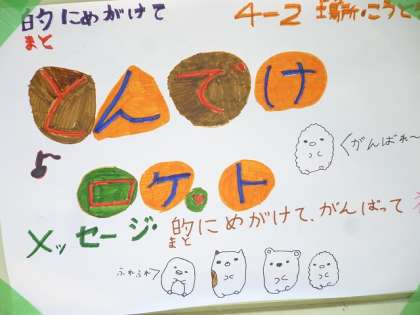 的にめがけて
まと
4-2 場所・こうど
とんでけ
がんばれ〜
♪ロケット
メッセージ・的にめがけて、がんばって
まと
ふぁふぁ